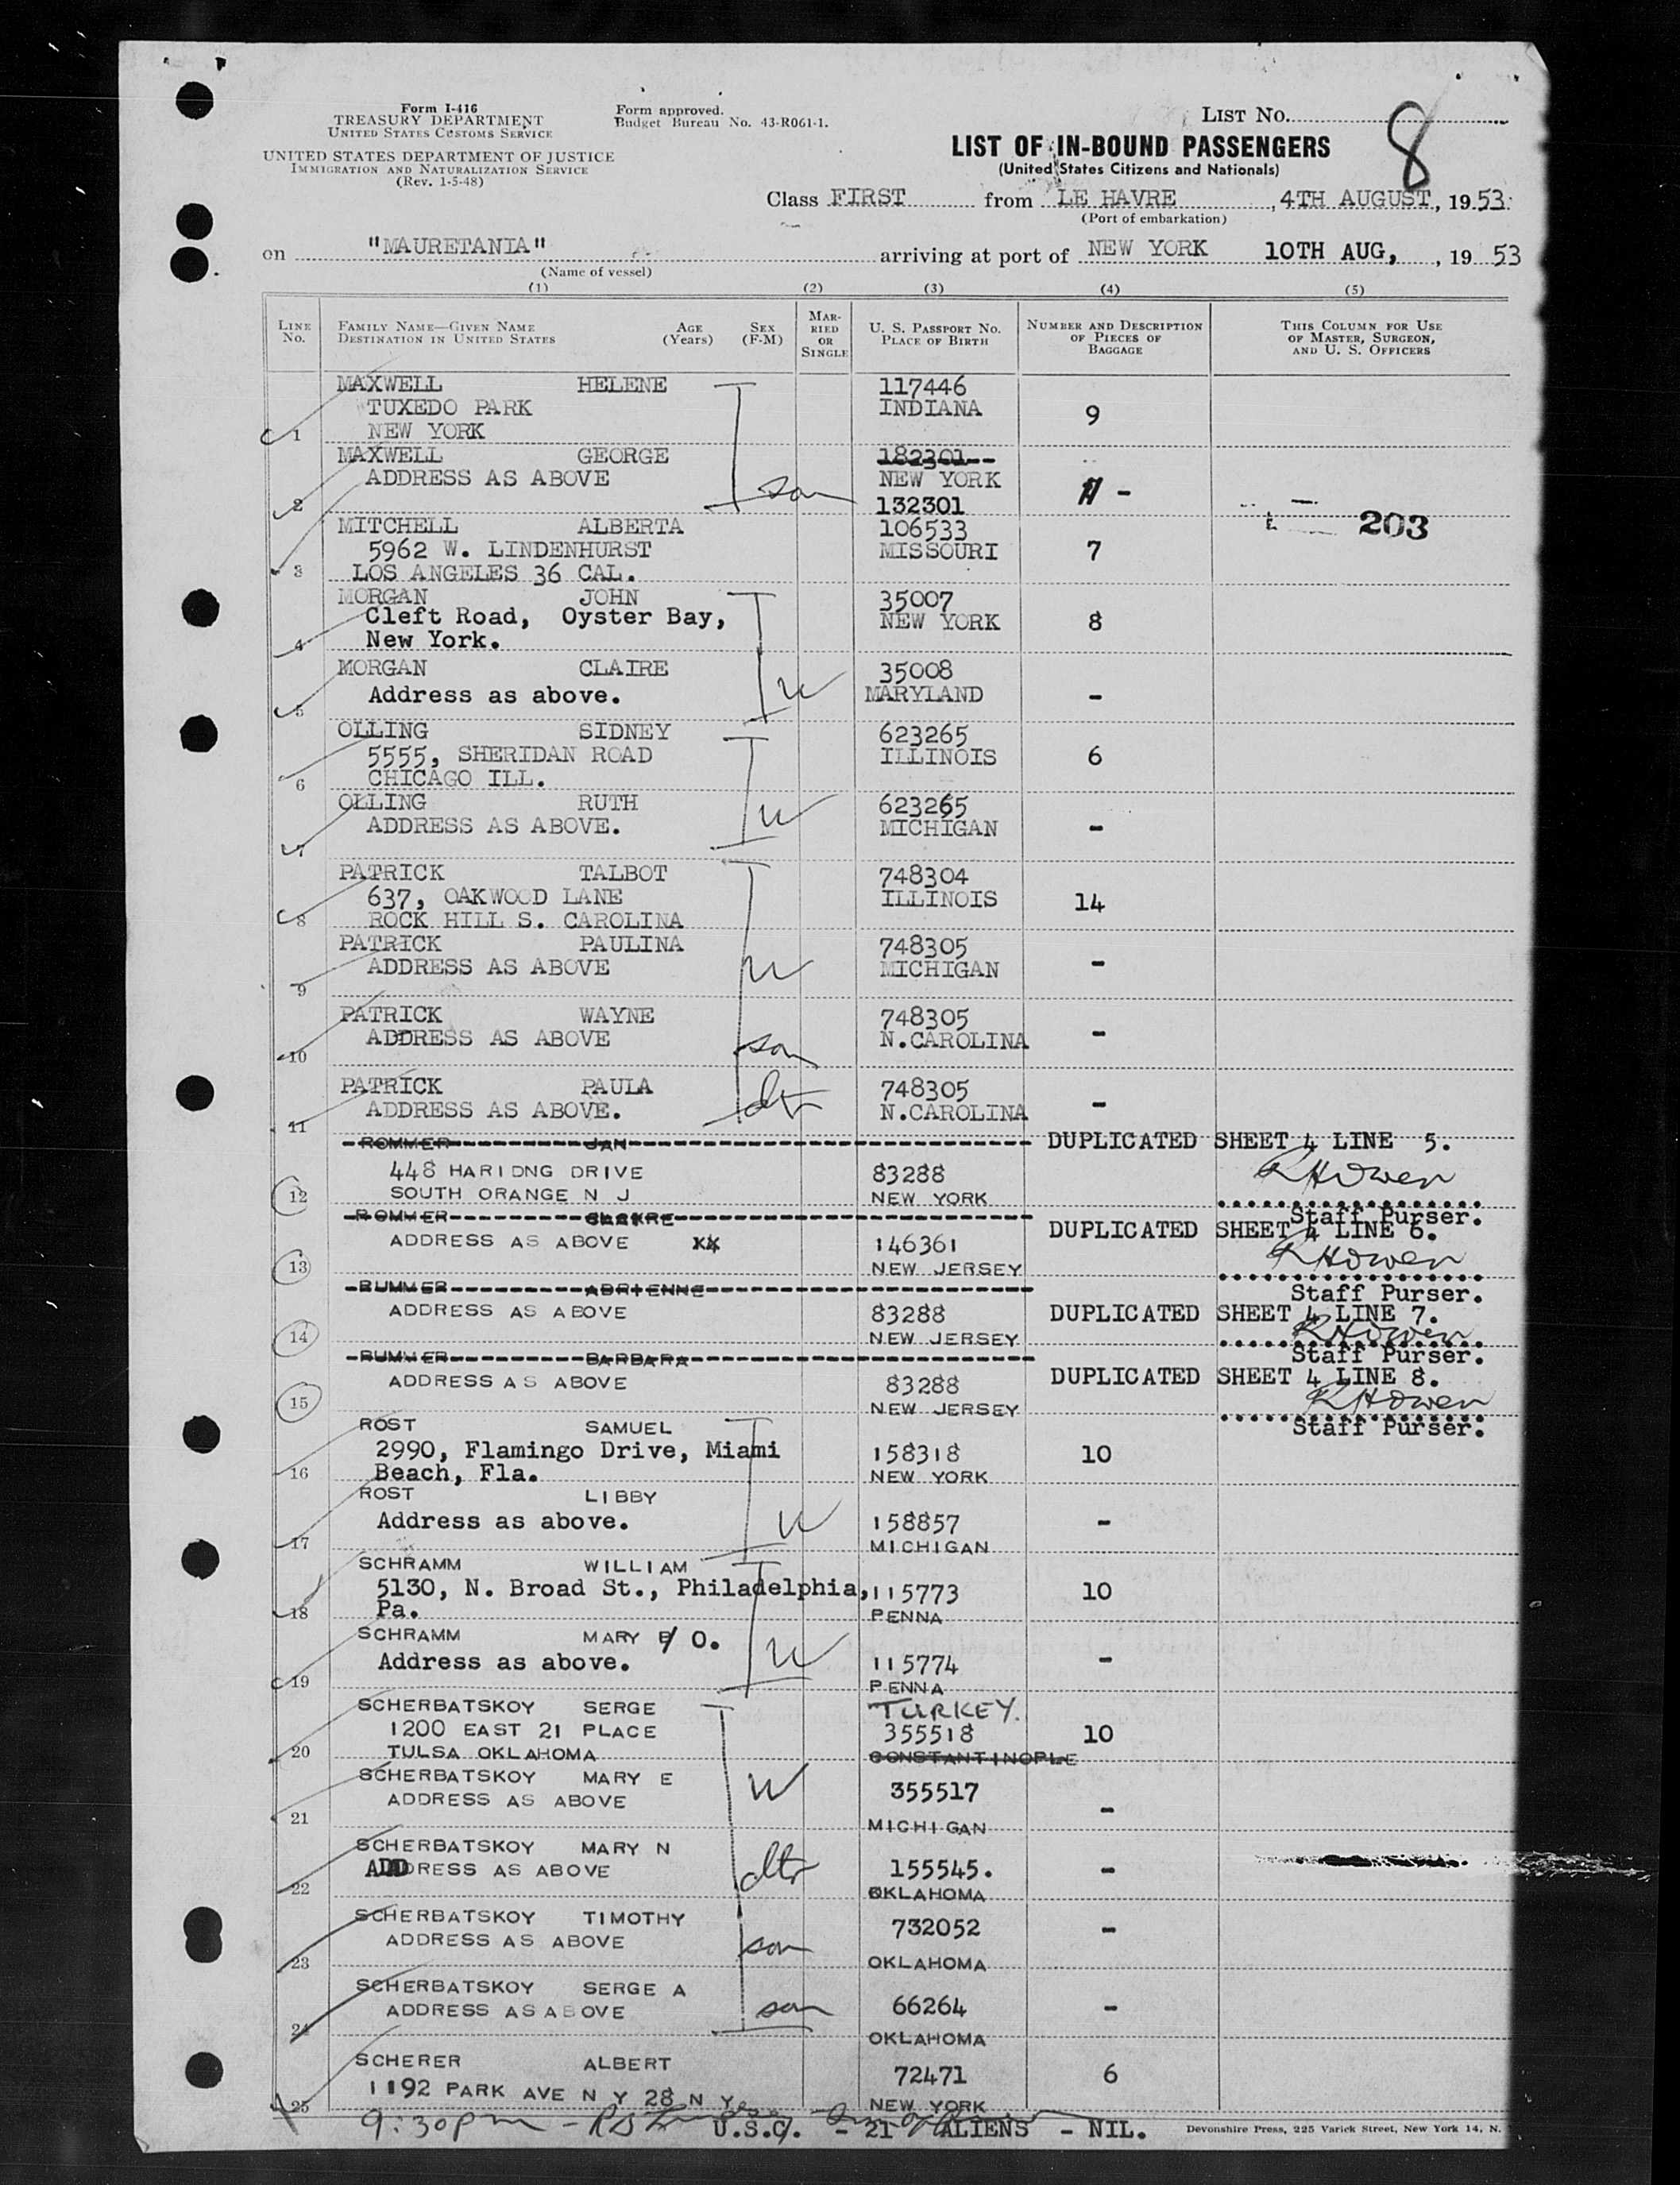 Form I-416
TREASURY DEPARTMENT
UNITED STATES CUSTOMS SERVICE
UNITED STATES DEPARTMENT OF JUSTICE
IMMIGRATION AND NATURALIZATION SERVICE
(Rev. 1-5-48)
Form approved.
Budget Bureau No. 43-R061-1.
LIST NO. 8
LIST OF IN-BOUND PASSENGERS
(United States Citizens and Nationals)
Class FIRST from LE HAVRE, 4TH AUGUST, 1953.
(Port of embarkation)
on "MAURETANIA" arriving at port of NEW YORK 10TH AUG, , 19 53
(Name of vessel)
(1) (2) (3) (4) (5)
LINE NO.
FAMILY NAME—GIVEN NAME
DESTINATION IN UNITED STATES
AGE (Years)
SEX (F-M)
MARRIED OR SINGLE
U. S. PASSPORT NO.
PLACE OF BIRTH
NUMBER AND DESCRIPTION OF PIECES OF BAGGAGE
THIS COLUMN FOR USE OF MASTER, SURGEON, AND U. S. OFFICERS
MAXWELL HELENE 117446
TUXEDO PARK INDIANA 9
1 NEW YORK
MAXWELL GEORGE 182301--
ADDRESS AS ABOVE NEW YORK
2 son 132301 -
203
MITCHELL ALBERTA 106533
5962 W. LINDENHURST MISSOURI 7
3 LOS ANGELES 36 CAL.
MORGAN JOHN 35007
Cleft Road, Oyster Bay, NEW YORK 8
4 New York.
MORGAN CLAIRE 35008
5 Address as above. w MARYLAND -
OLLING SIDNEY 623265
5555, SHERIDAN ROAD ILLINOIS 6
6 CHICAGO ILL.
OLLING RUTH 623265
7 ADDRESS AS ABOVE. w MICHIGAN -
PATRICK TALBOT 748304
637, OAKWOOD LANE ILLINOIS 14
8 ROCK HILL S. CAROLINA
PATRICK PAULINA 748305
9 ADDRESS AS ABOVE w MICHIGAN -
PATRICK WAYNE 748305
10 ADDRESS AS ABOVE son N.CAROLINA -
PATRICK PAULA 748305
11 ADDRESS AS ABOVE. dtr N.CAROLINA -
ROMMER JAN DUPLICATED SHEET 4 LINE 5.
448 HARIDNG DRIVE 83288 RHOwen
12 SOUTH ORANGE N J NEW YORK
Staff Purser.
ROMMER DUPLICATED SHEET 4 LINE 6.
ADDRESS AS ABOVE XX 146361 RHOwen
13 NEW JERSEY
Staff Purser.
RUMMER ADRIENNE DUPLICATED SHEET 4 LINE 7.
ADDRESS AS ABOVE 83288 RHOwen
14 NEW JERSEY
Staff Purser.
RUMMER BARBARA DUPLICATED SHEET 4 LINE 8.
ADDRESS AS ABOVE 83288 RHOwen
15 NEW JERSEY
Staff Purser.
ROST SAMUEL
2990, Flamingo Drive, Miami 158318 10
16 Beach, Fla. NEW YORK
ROST LIBBY
Address as above. w 158857 -
17 MICHIGAN
SCHRAMM WILLIAM
5130, N. Broad St., Philadelphia, 115773 10
18 Pa. PENNA
SCHRAMM MARY O.
Address as above. w 115774 -
19 PENNA
SCHERBATSKOY SERGE TURKEY.
1200 EAST 21 PLACE 355518 10
20 TULSA OKLAHOMA CONSTANTINOPLE
SCHERBATSKOY MARY E w 355517
ADDRESS AS ABOVE -
21 MICHIGAN
SCHERBATSKOY MARY N
ADDRESS AS ABOVE dtr 155545. -
22 OKLAHOMA
SCHERBATSKOY TIMOTHY 732052 -
ADDRESS AS ABOVE son
23 OKLAHOMA
SCHERBATSKOY SERGE A
ADDRESS AS ABOVE son 66264 -
24 OKLAHOMA
SCHERER ALBERT 72471 6
1192 PARK AVE N Y 28 N Y
25 NEW YORK
9:30pm -
U.S.C. - 21 ALIENS - NIL.
Devonshire Press, 225 Varick Street, New York 14, N.